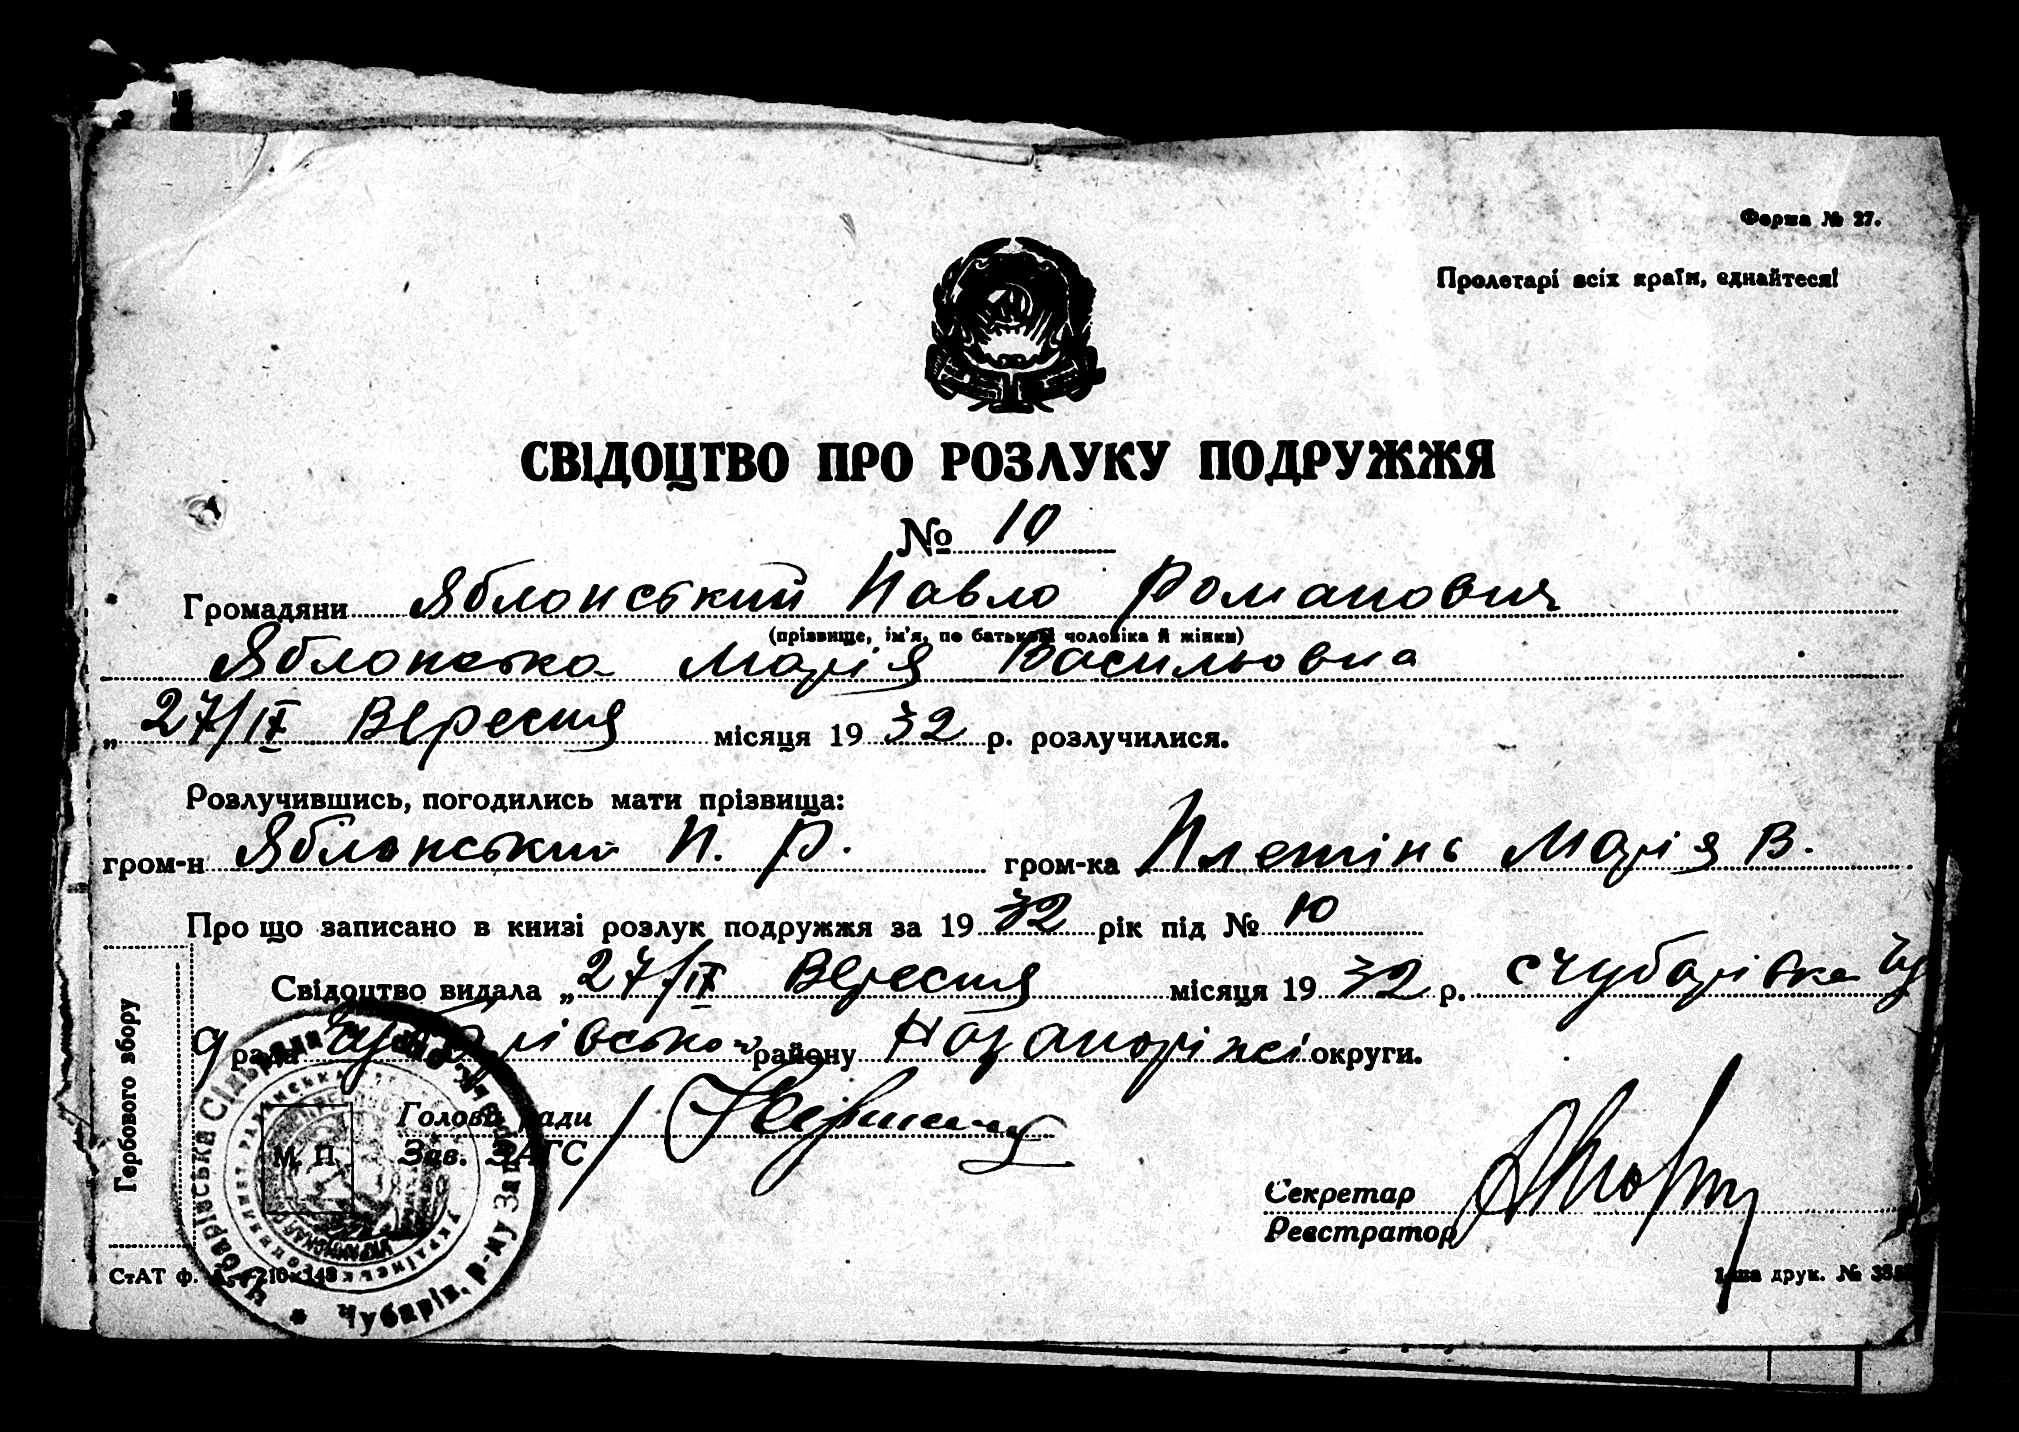 Форма № 27.
Пролетарі всіх країн, єднайтеся!
СВІДОЦТВО ПРО РОЗЛУКУ ПОДРУЖЖЯ
№ 10
Громадяни Яблонський Павло Романович
(прізвище, ім'я, по батькові чоловіка й жінки)
Яблонська Марія Васильовна
„ 27/IX Вересня місяця 1932 р. розлучилися.
Розлучившись, погодились мати прізвища:
гром-н Яблонський П. Р. гром-ка Плетінь Марія В.
Про що записано в книзі розлук подружжя за 1932 рік під № 10
Свідоцтво видала „ 27/IX Вересня місяця 1932 р. с Чубарівка
рада Чубарівсько району округи.
Гербового збору
М. П.
Голова ради
Зав. ЗАГС
Секретар
Реєстратор
СтАТ ф.
друк. №